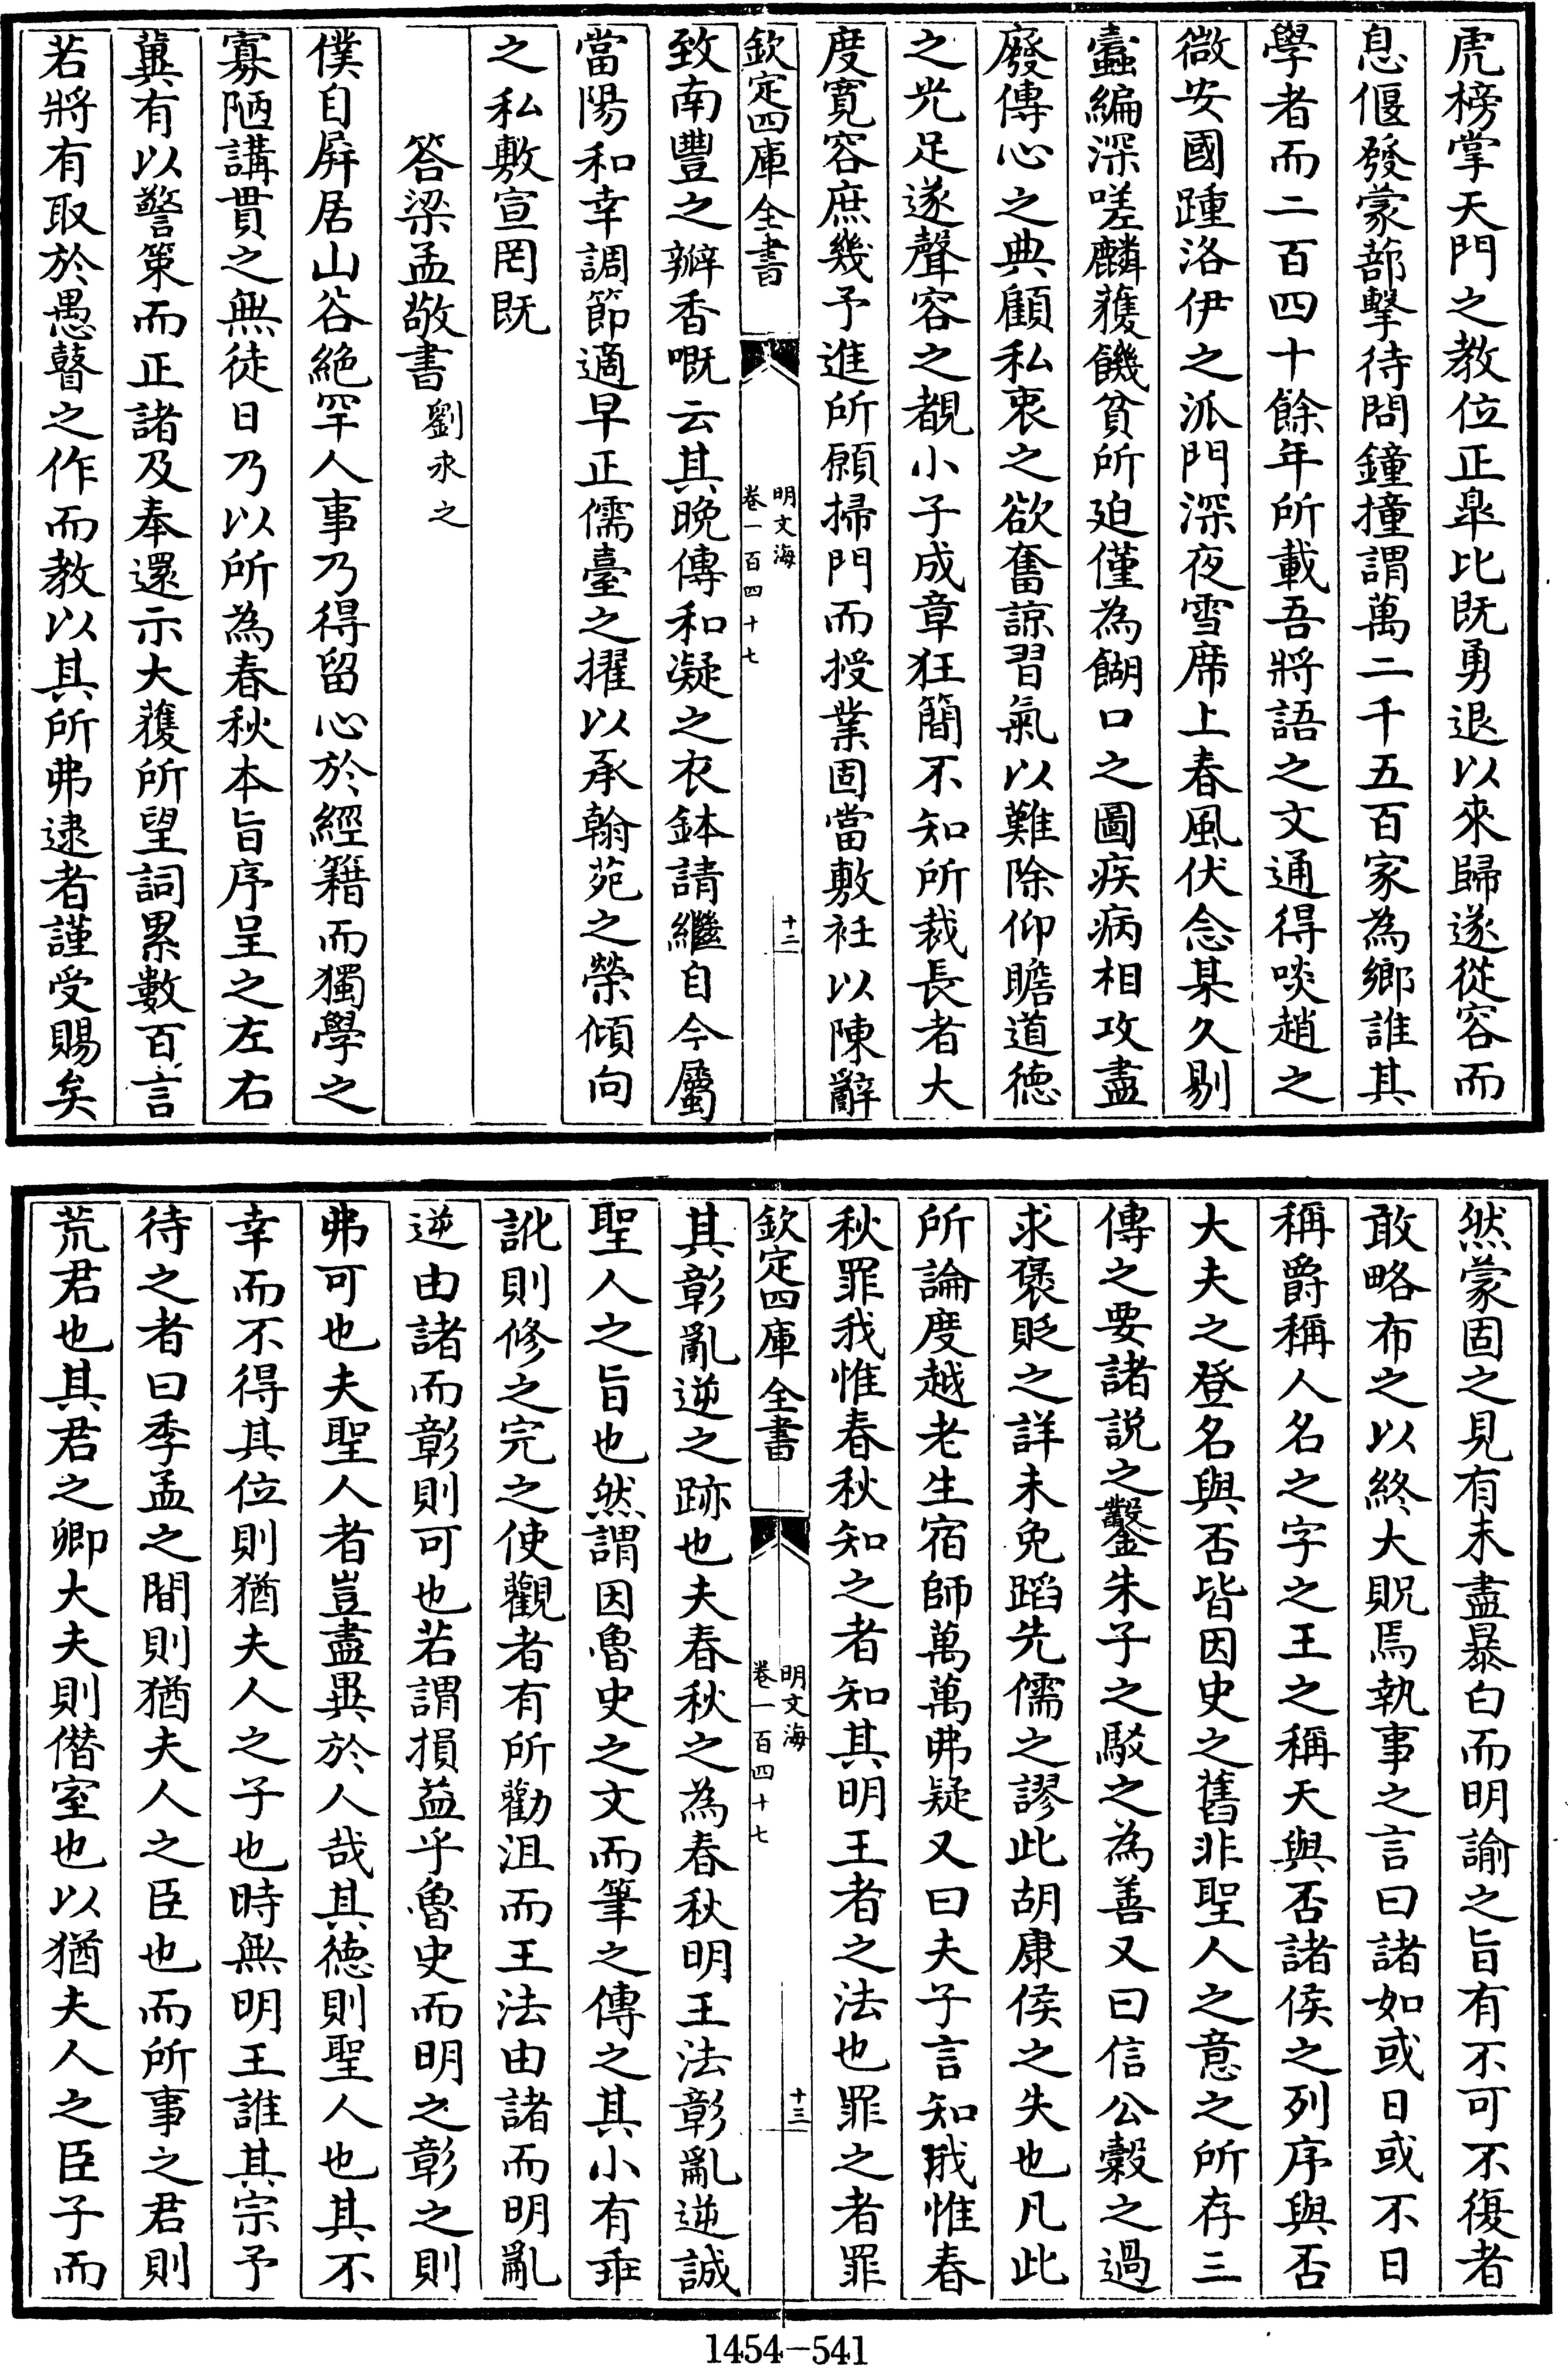 虎榜掌天門之教位正臯比既勇退以來歸遂從容而
息偃發蒙蔀擊待問鐘撞謂萬二千五百家為鄉誰其
學者而二百四十餘年所載吾將語之文通得啖趙之
微安國踵洛伊之派門深夜雪席上春風伏念某久剔
蠹編深嗟麟獲饑貧所廹僅為餬口之圖疾病相攻盡
廢傳心之典顧私衷之欲奮諒習氣以難除仰瞻道德
之光足遂聲容之覩小子成章狂簡不知所裁長者大
度寬容庶幾予進所願掃門而授業固當敷衽以陳辭
欽定四庫全書
明文海
卷一百四十七
十二
致南豐之瓣香嘅云其晚傳和凝之衣鉢請繼自今屬
當陽和幸調節適早正儒臺之擢以承翰苑之榮傾向
之私敷宣罔既
答梁孟敬書劉永之
僕自屏居山谷絶罕人事乃得留心於經籍而獨學之
寡陋講貫之無徒日乃以所為春秋本旨序呈之左右
冀有以警策而正諸及奉還示大獲所望詞累數百言
若將有取於愚瞽之作而教以其所弗逮者謹受賜矣
然蒙固之見有未盡暴白而明諭之旨有不可不復者
敢略布之以終大貺焉執事之言曰諸如或日或不日
稱爵稱人名之字之王之稱天與否諸侯之列序與否
大夫之登名與否皆因史之舊非聖人之意之所存三
傳之要諸説之鑿朱子之駁之為善又曰信公穀之過
求褒貶之詳未免蹈先儒之謬此胡康侯之失也凡此
所論度越老生宿師萬萬弗疑又曰夫子言知我惟春
秋罪我惟春秋知之者知其明王者之法也罪之者罪
欽定四庫全書
明文海
卷一百四十七
十三
其彰亂逆之跡也夫春秋之為春秋明王法彰亂逆誠
聖人之旨也然謂因魯史之文而筆之傳之其小有乖
訛則修之完之使觀者有所勸沮而王法由諸而明亂
逆由諸而彰則可也若謂損益乎魯史而明之彰之則
弗可也夫聖人者豈盡異於人哉其德則聖人也其不
幸而不得其位則猶夫人之子也時無明王誰其宗予
待之者曰季孟之間則猶夫人之臣也而所事之君則
荒君也其君之卿大夫則僭室也以猶夫人之臣子而
1454-541